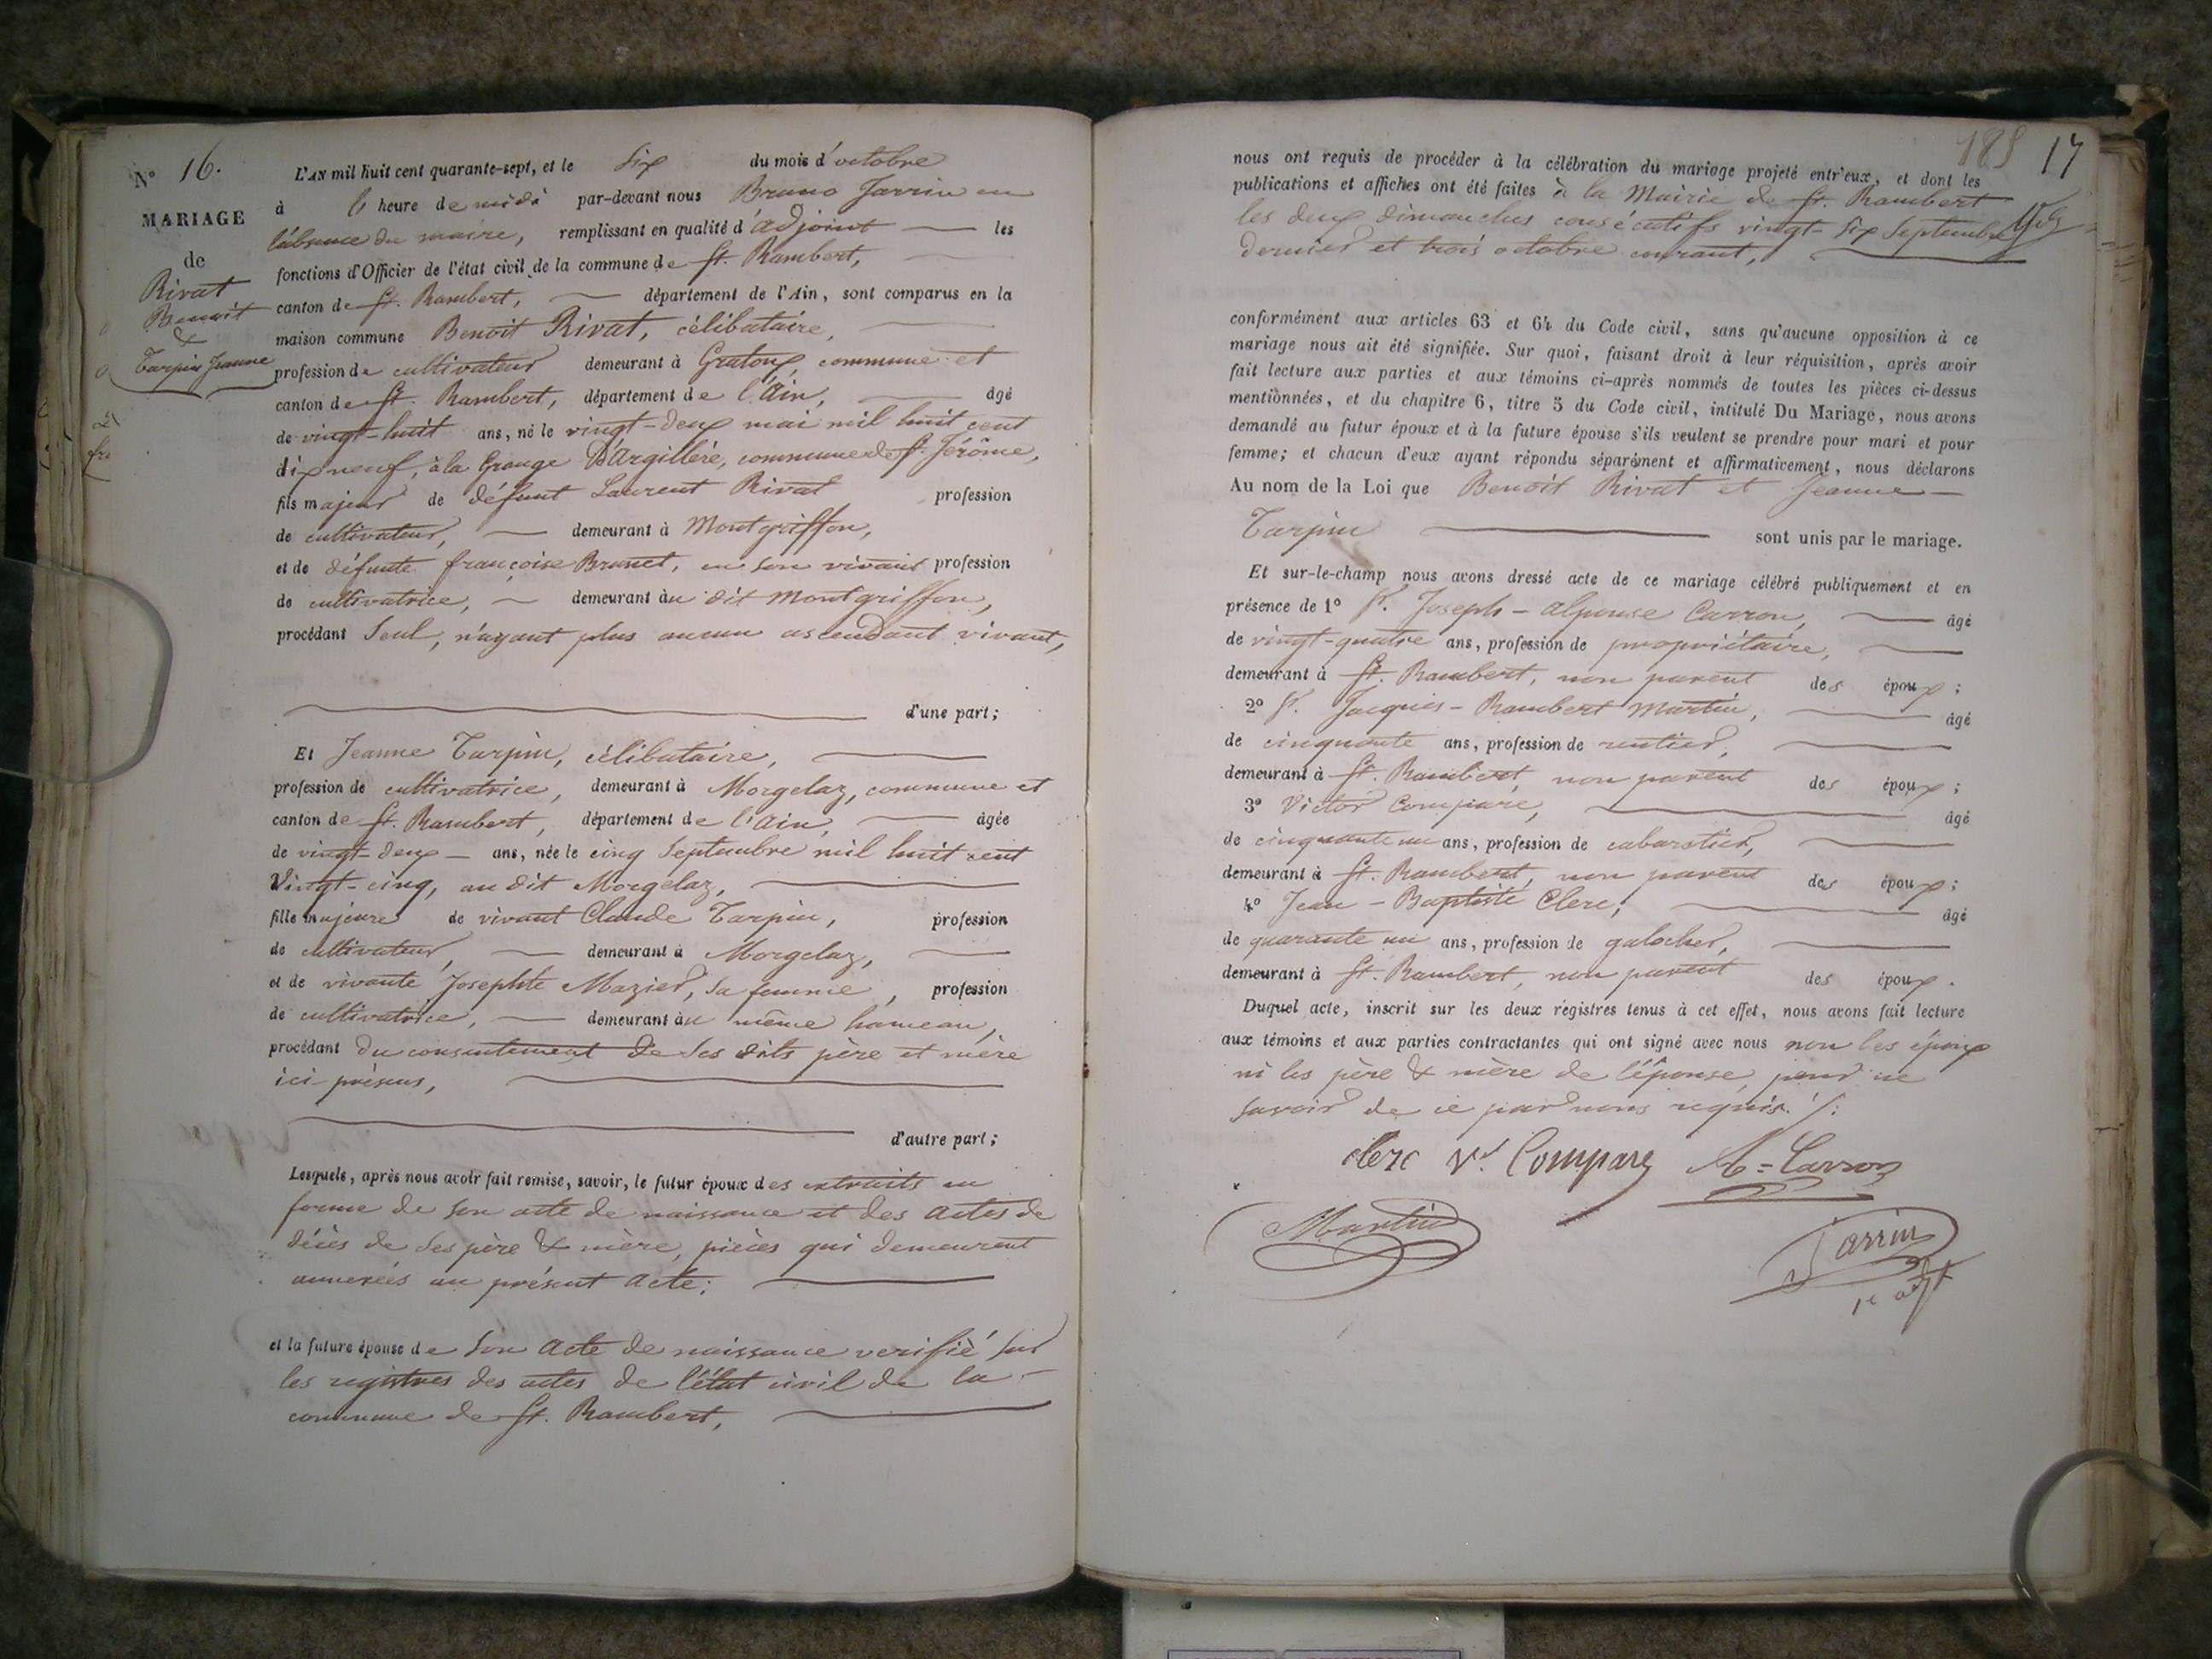 N° 16.
MARIAGE
de
Rivat
Benoit
&
Tarpin Jeanne
L'AN mil huit cent quarante-sept, et le six du mois d'octobre
à l' heure de midi par-devant nous Bruno Jarrin en
l'absence du maire, remplissant en qualité d'adjoint les
fonctions d'Officier de l'état civil de la commune de St. Rambert,
canton de St. Rambert, département de l'Ain, sont comparus en la
maison commune Benoit Rivat, célibataire,
profession de cultivateur demeurant à Gratoux, commune et
canton de St. Rambert, département de l'Ain, âgé
de vingt-huit ans, né le vingt-deux mai mil huit cent
dix neuf, à la Grange D'Argillère, commune de St. Jérôme,
fils majeur de défunt Laurent Rivat profession
de cultivateur, demeurant à Montgriffon,
et de défunte françoise Brunet, en son vivant profession
de cultivatrice, demeurant au dit Montgriffon,
procédant seul, n'ayant plus aucun ascendant vivant,
d'une part ;
Et Jeanne Tarpin, célibataire,
profession de cultivatrice, demeurant à Morgelaz, commune et
canton de St. Rambert, département de l'Ain, âgée
de vingt-deux ans, née le cinq Septembre mil huit cent
Vingt-cinq, au dit Morgelaz,
fille majeure de vivant Claude Tarpin, profession
de cultivateur, demeurant à Morgelaz,
et de vivante Josephte Mazier, sa femme, profession
de cultivatrice, demeurant au même hameau,
procédant du consentement de ses dits père et mère
ici présens,
d'autre part ;
Lesquels, après nous avoir fait remise, savoir, le futur époux des extraits en
forme de son acte de naissance et des actes de
décès de ses père & mère, pièces qui demeurent
annexées au présent acte;
et la future épouse de son acte de naissance verifié sur
les registres des actes de l'état civil de la
commune de St. Rambert,
183 17
nous ont requis de procéder à la célébration du mariage projeté entr'eux, et dont les
publications et affiches ont été faites à la Mairie de St. Rambert
les deux dimanches consécutifs vingt-six Septembre
dernier et trois octobre courant,
conformément aux articles 63 et 64 du Code civil, sans qu'aucune opposition à ce
mariage nous ait été signifiée. Sur quoi, faisant droit à leur réquisition, après avoir
fait lecture aux parties et aux témoins ci-après nommés de toutes les pièces ci-dessus
mentionnées, et du chapitre 6, titre 5 du Code civil, intitulé Du Mariage, nous avons
demandé au futur époux et à la future épouse s'ils veulent se prendre pour mari et pour
femme; et chacun d'eux ayant répondu séparément et affirmativement, nous déclarons
Au nom de la Loi que Benoit Rivat et Jeanne
Tarpin sont unis par le mariage.
Et sur-le-champ nous avons dressé acte de ce mariage célébré publiquement et en
présence de 1° Sr. Joseph-alponse Carron, âgé
de vingt-quatre ans, profession de propriétaire,
demeurant à St. Rambert, non parent des époux ;
2° Sr. Jacques-Rambert Martin, âgé
de cinquante ans, profession de rentier,
demeurant à St. Rambert, non parent des époux ;
3° Victor Compare, âgé
de cinquante un ans, profession de cabarstier,
demeurant à St. Rambert, non parent des époux ;
4° Jean-Baptiste Clerc, âgé
de quarante un ans, profession de galocher,
demeurant à St. Rambert, non parent des époux.
Duquel acte, inscrit sur les deux régistres tenus à cet effet, nous avons fait lecture
aux témoins et aux parties contractantes qui ont signé avec nous non les époux
ni les père & mère de l'épouse, pour ne
savoir de ce par nous requis./:
Clerc Vr. Compare A=Carron
Martin
Jarrin
1er adjt